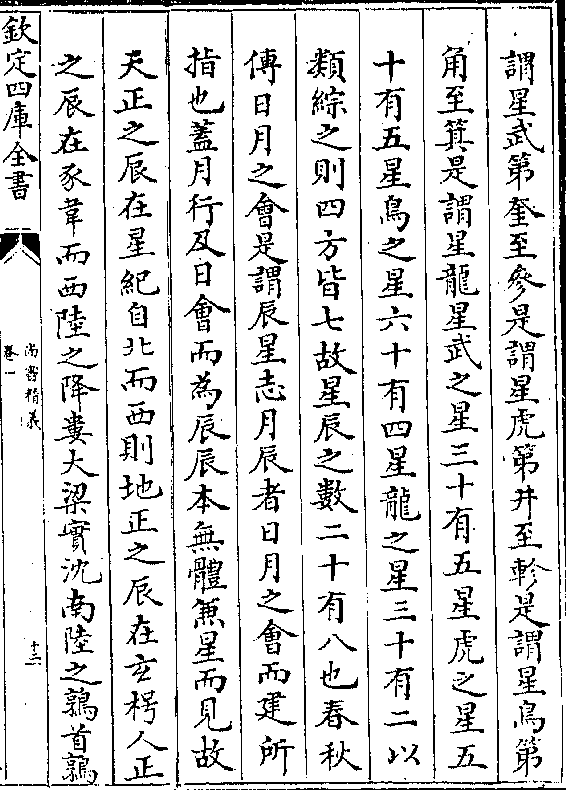 謂星武第奎至參是謂星虎第井至軫是謂星鳥第
角至箕是謂星龍星武之星三十有五星虎之星五
十有五星鳥之星六十有四星龍之星三十有二以
類綜之則四方皆七故星辰之數二十有八也春秋
傳日月之會是謂辰星志月辰者日月之會而建所
指也蓋月行及日會而為辰辰本無體無星而見故
天正之辰在星紀自北而西則地正之辰在玄枵人正
之辰在豕韋而西陸之降婁大梁實沈南陸之鶉首鶉
欽定四庫全書
尚書精義
卷一
十二